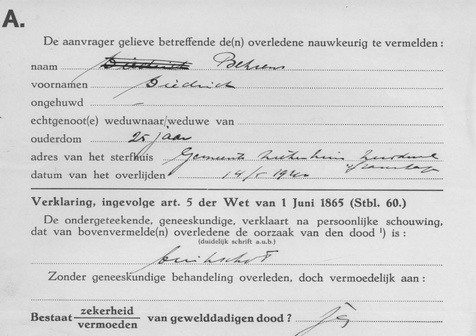 A.
De aanvrager gelieve betreffende de(n) overledene nauwkeurig te vermelden :
naam Diedrich Behrens
voornamen Diedrich
ongehuwd –
echtgenoot(e) weduwnaar/weduwe van
ouderdom 25 jaar
adres van het sterfhuis Gemeente Ziekenhuis
datum van het overlijden 14/5 1940
Verklaring, ingevolge art. 5 der Wet van 1 Juni 1865 (Stbl. 60.)
De ondergeteekende, geneeskundige, verklaart na persoonlijke schouwing,
dat van bovenvermelde(n) overledene de oorzaak van den dood ¹) is :
(duidelijk schrift a.u.b.)
Zonder geneeskundige behandeling overleden, doch vermoedelijk aan :
Bestaat zekerheid van gewelddadigen dood ?
vermoeden